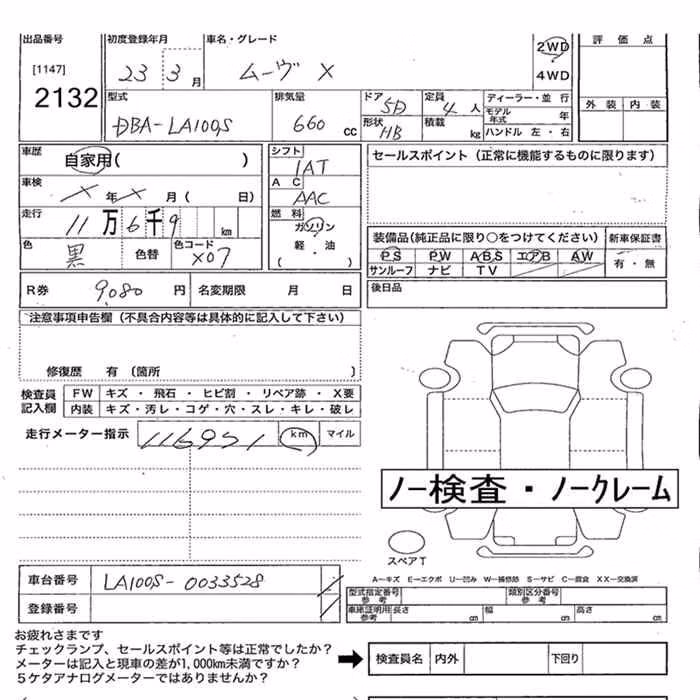 出品番号 初度登録年月 車名・グレード 2WD 評価点
[1147] 23 3月 ムーヴ X 4WD
2132 型式 排気量 ドア 5D 定員 4人 ディーラー・並行 外装 内装
DBA-LA100S 660cc 形状 HB 積載 kg モデル年式 年
ハンドル 左・右
車歴 自家用( ) シフト IAT セールスポイント(正常に機能するものに限ります)
車検 X年X月(日) AC AAC
走行 11万6千9 km 燃料 ガソリン
軽・油
( )
装備品(純正品に限り○をつけてください) 新車保証書
色 黒 色替 色コード X07 PS PW ABS エアB AW 有・無
サンルーフ ナビ TV
R券 9,080円 名変期限 月 日 後日品
注意事項申告欄(不具合内容等は具体的に記入して下さい)
修復歴 有(箇所 )
検査員記入欄 FW キズ・飛石・ヒビ割・リペア跡・X要
内装 キズ・汚レ・コゲ・穴・スレ・キレ・破レ
走行メーター指示 116951 km マイル
ノー検査・ノークレーム
スペアT
A―キズ E―エクボ U―凹み W―補修跡 S―サビ C―腐食 XX―交換済
車台番号 LA100S-0033528
登録番号
型式指定番号 参考 類別区分番号 参考
車庫証明用 参考 長さ cm 幅 cm 高さ cm
お疲れさまです
チェックランプ、セールスポイント等は正常でしたか?
メーターは記入と現車の差が1,000km未満ですか?
5ケタアナログメーターではありませんか?
検査員名 内外 下回り